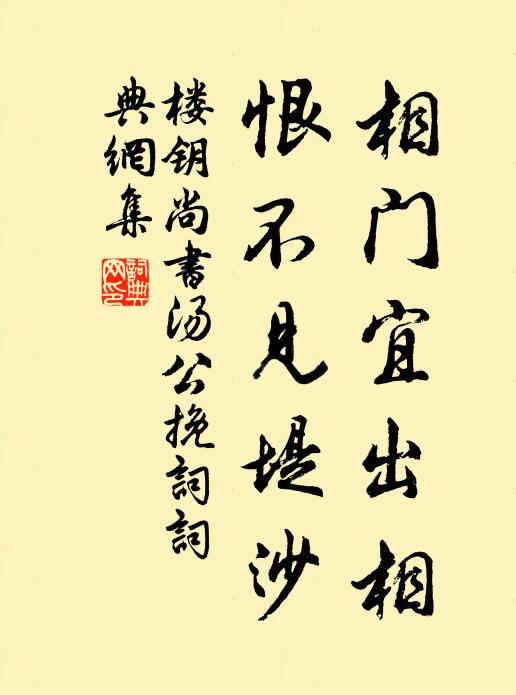 相门宜出相
恨不见堤沙
楼钥尚书汤公挽词词
典網集
詞典
网印